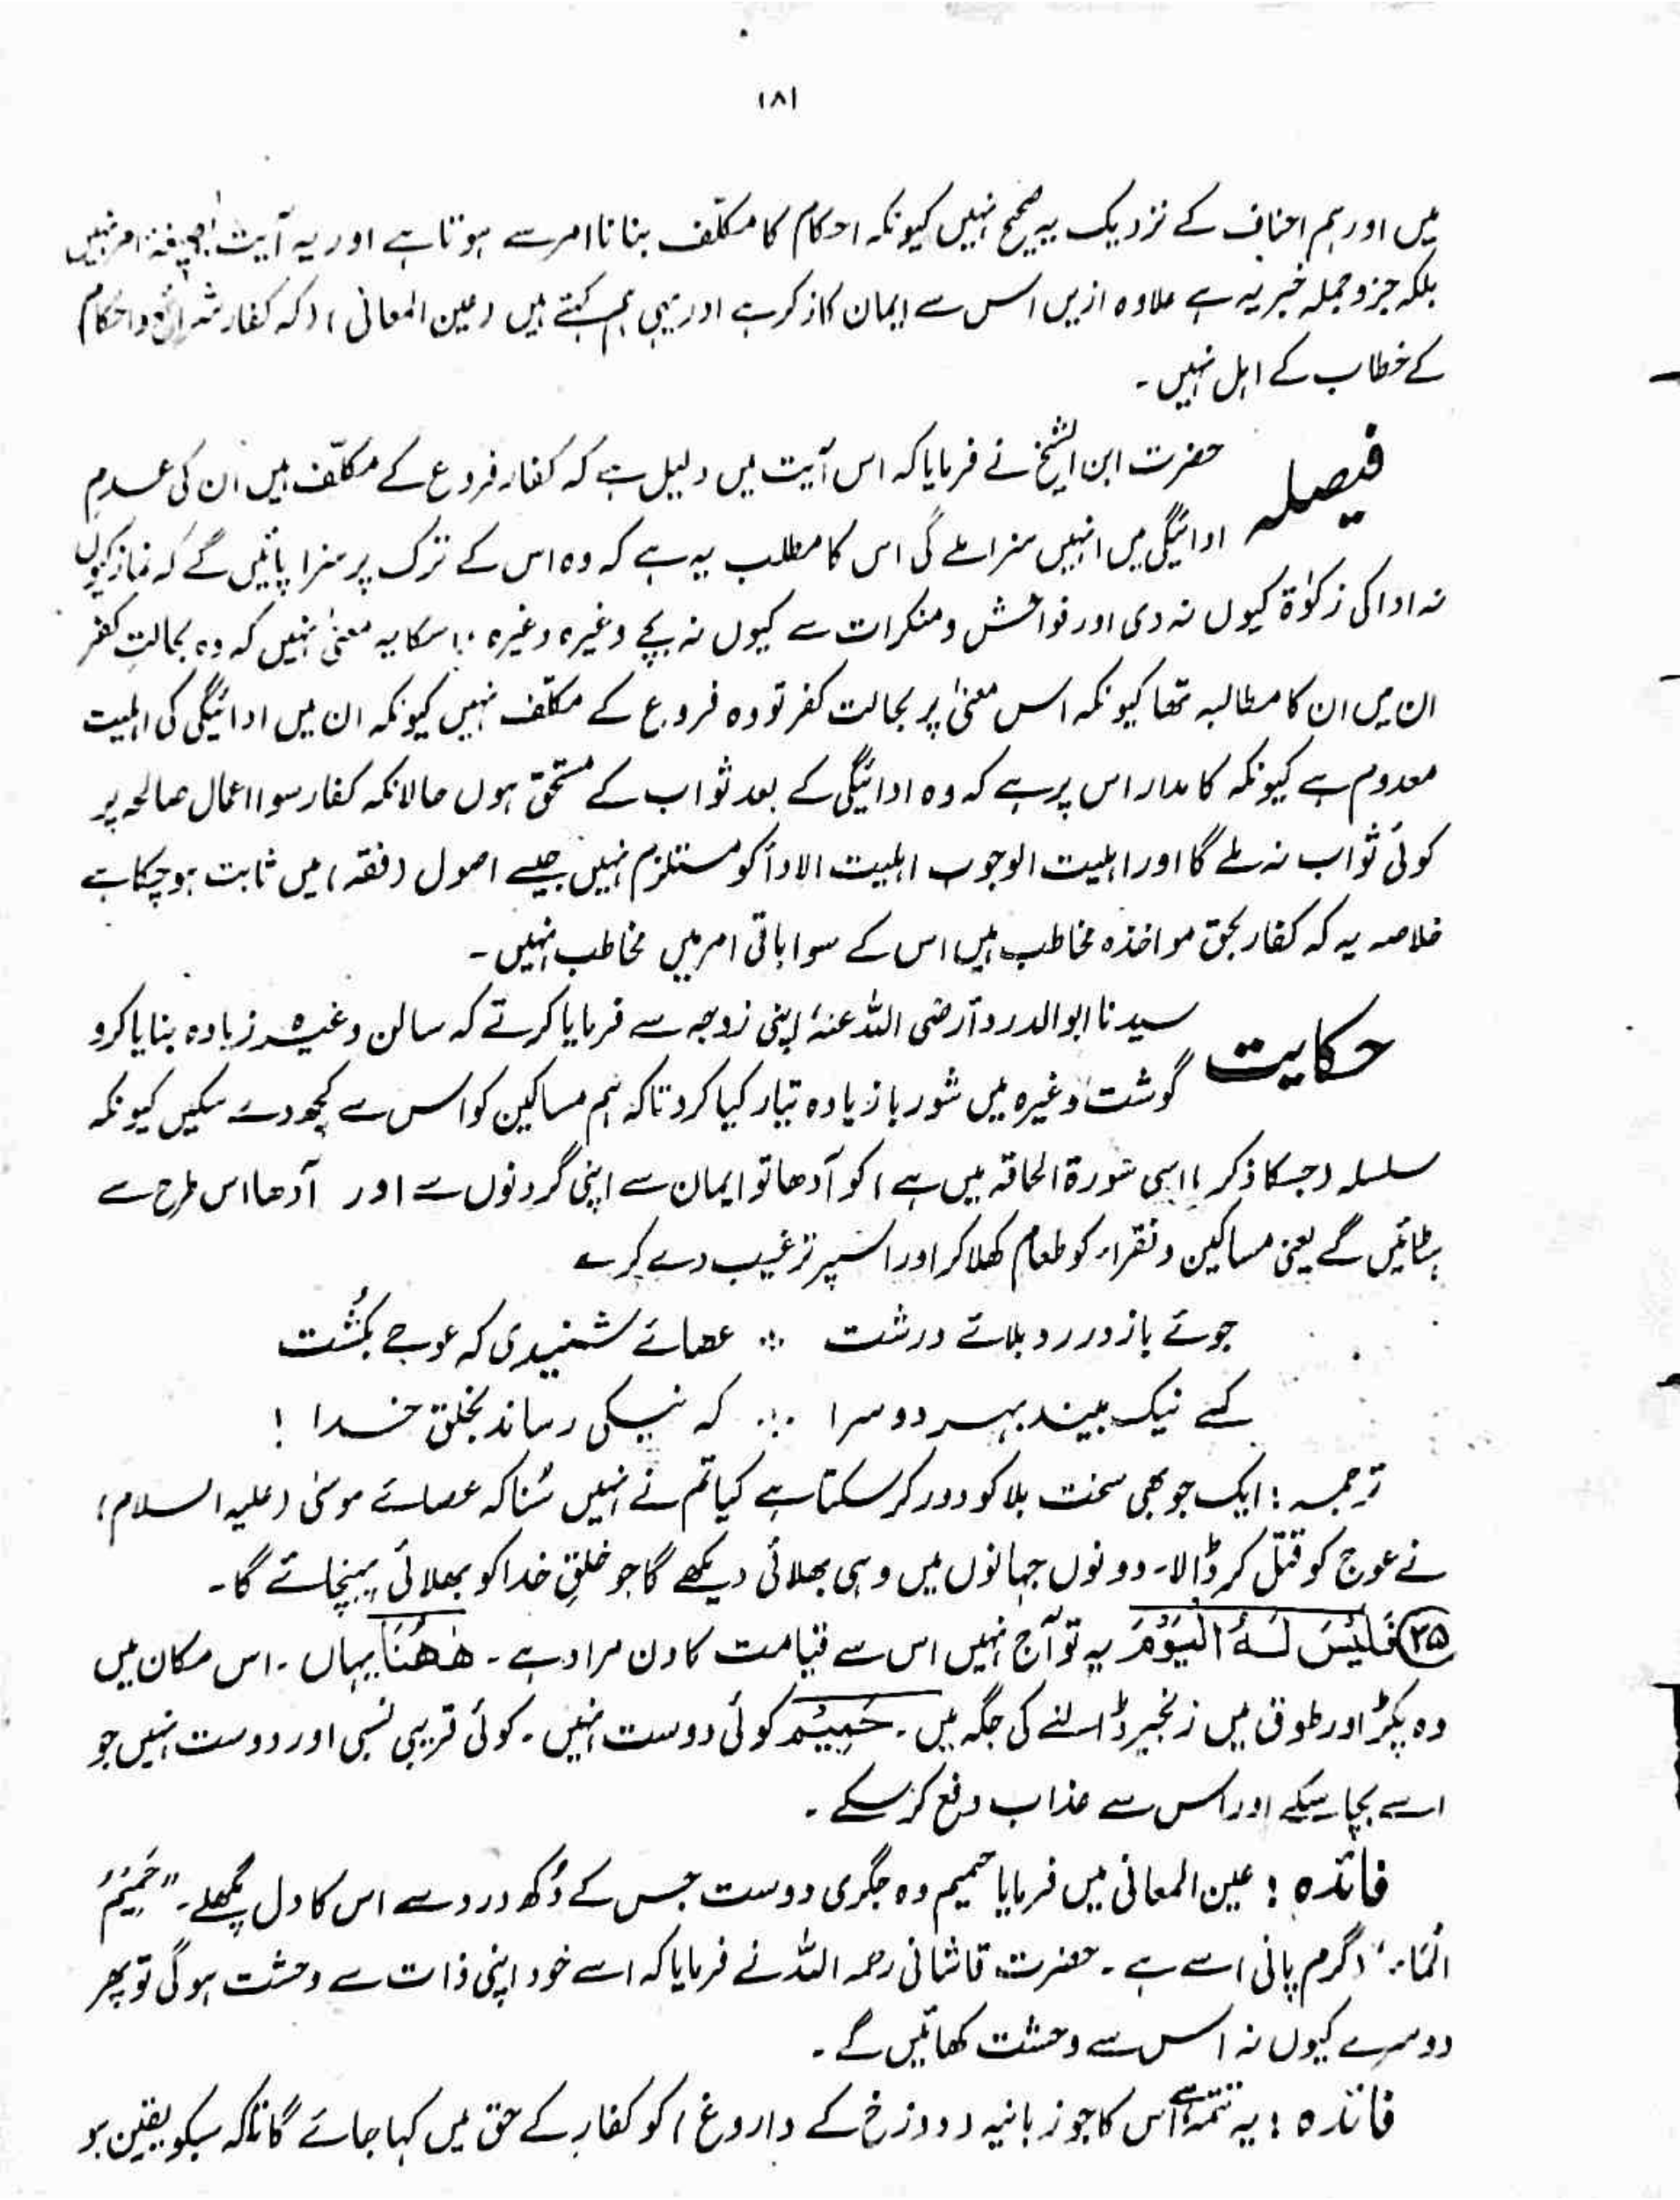 ۱۸۱
ہیں اور ہم احناف کے نزدیک یہ صحیح نہیں کیونکہ احکام کا مکلّف بنانا امر سے ہوتا ہے اور یہ آیت بصیغۂ امر نہیں
بلکہ جزو جملہ خبریہ ہے علاوہ ازیں اس سے ایمان کا ذکر ہے اور یہی ہم کہتے ہیں (عین المعانی) (کہ کفار شرائع و احکام)
کے خطاب کے اہل نہیں ۔
فیصلہ حضرت ابن الشیخ نے فرمایا کہ اس آیت میں دلیل ہے کہ کفار فروع کے مکلّف ہیں ان کی عدم
ادائیگی میں انہیں سزا ملے گی اس کا مطلب یہ ہے کہ وہ اس کے ترک پر سزا پائیں گے کہ نماز کیوں
نہ ادا کی زکوٰۃ کیوں نہ دی اور فواحش و منکرات سے کیوں نہ بچے وغیرہ وغیرہ ۔ اسکا یہ معنیٰ نہیں کہ وہ بحالتِ کفر
ان میں ان کا مطالبہ تھا کیونکہ اس معنیٰ پر بحالت کفر تو وہ فروع کے مکلّف نہیں کیونکہ ان میں ادائیگی کی اہلیت
معدوم ہے کیونکہ کا مدار اس پر ہے کہ وہ ادائیگی کے بعد ثواب کے مستحق ہوں حالانکہ کفار سوا اعمال صالحہ پر
کوئی ثواب نہ ملے گا اور اہلیت الوجوب اہلیت الاداٗ کو مستلزم نہیں جیسے اصول (فقہ) میں ثابت ہو چکا ہے
خلاصہ یہ کہ کفار بحق مواخذہ مخاطب ہیں اس کے سوا باقی امر میں مخاطب نہیں ۔
حکایت سیدنا ابوالدرداٗ رضی اللہ عنہٗ اپنی زوجہ سے فرمایا کرتے کہ سالن وغیرہ زیادہ بنایا کرو
گوشت وغیرہ میں شوربا زیادہ تیار کیا کرو تاکہ ہم مساکین کو اس سے کچھ دے سکیں کیونکہ
سلسلہ (جسکا ذکر اسی سورۃ الحاقہ میں ہے) کو آدھا تو ایمان سے اپنی گردنوں سے اور آدھا اس طرح سے
ہٹائیں گے یعنی مساکین و فقراء کو طعام کھلا کر اور اسپر ترغیب دے کر ؎
جوئے باز دارد بلائے درشت ؞ عصائے شنیدی کہ عوجے بکُشت
کسے نیک بیند بہر دو سرا ؞ کہ نیکی رساند بخلق خدا !
ترجمہ : ایک جو بھی سخت بلا کو دور کر سکتا ہے کیا تم نے نہیں سُنا کہ عصائے موسیٰ (علیہ السلام)
نے عوج کو قتل کر ڈالا۔ دونوں جہانوں میں وہی بھلائی دیکھے گا جو خلقِ خدا کو بھلائی پہنچائے گا ۔
۳۵ فَلَیْسَ لَہُ الْیَوْمَ یہ تو آج نہیں اس سے قیامت کا دن مراد ہے ۔ ھٰھُنَا یہاں ۔ اس مکان میں
وہ پکڑ اور طوق میں زنجیر ڈالنے کی جگہ میں ۔ حَمِیْمٌ کوئی دوست نہیں ۔ کوئی قریبی نسبی اور دوست نہیں جو
اسے بچا سکے اور اس سے عذاب دفع کر سکے ۔
فائدہ : عین المعانی میں فرمایا حمیم وہ جگری دوست جس کے دُکھ درد سے اس کا دل پگھلے ۔ "حَمِیْمُ
الْمَاء" (گرم پانی) سے ہے ۔ حضرت قاشانی رحمہ اللہ نے فرمایا کہ اسے خود اپنی ذات سے وحشت ہو گی تو پھر
دوسرے کیوں نہ اس سے وحشت کھائیں گے ۔
فائدہ : یہ تتمہ ہے اس کا جو زبانیہ (دوزخ کے داروغے) کو کفار کے حق میں کہا جائے گا تاکہ سبکو یقین ہو